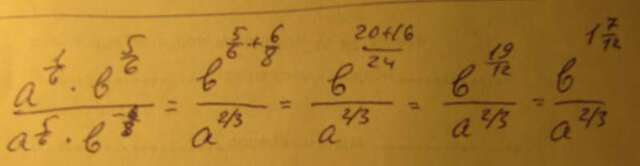 a^(1/6) · b^(5/6) / a^(5/6) · b^(-6/8) = b^(5/6 + 6/8) / a^(2/3) = b^((20+16)/24) / a^(2/3) = b^(19/12) / a^(2/3) = b^(1 7/12) / a^(2/3)